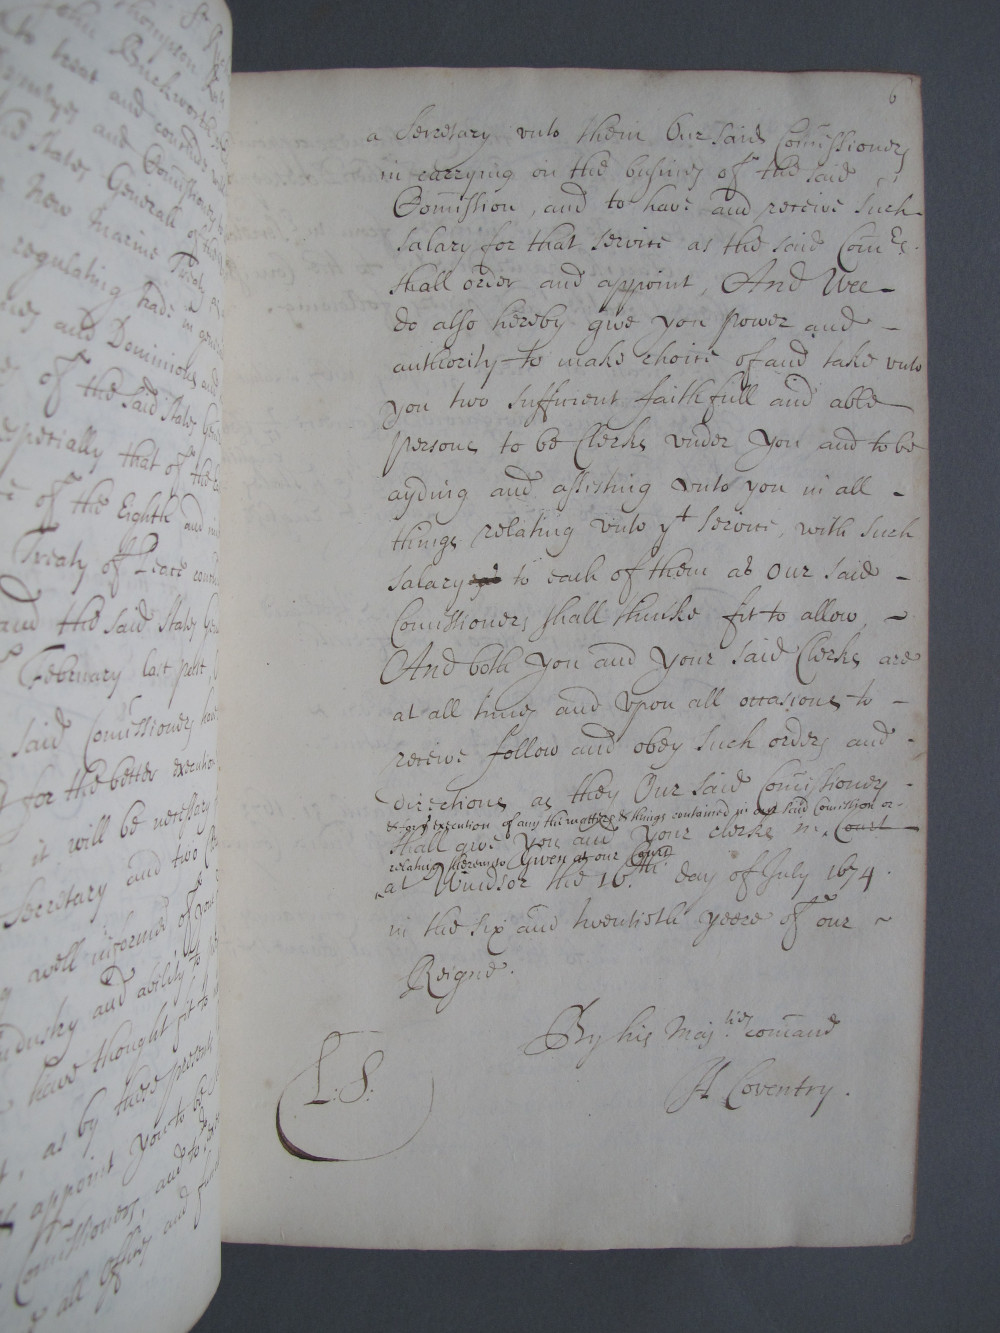 St
Thompson
John Buckworth
to treat and conclude with
and Comissioners
the States Generall of the
a New Marine Treaty
regulating trade in generall
and Dominions and
of the said States
especially that of the
of the Eighth and
Treaty of Peace
and the said States
February last past
said Comissioners have
for the better execution
it will be necessary
Secretary and two
well informed of your
industry and ability
have thought fit
as by these presents
appoint you to be
Comissioners, and to
all offices and
6
a Secretary unto them Our said Comissioners
in carrying on the busines of the said
Comission, and to have and receive such
salary for that service as the said Comrs.
shall order and appoint, And Wee
do also hereby give you power and
authority to make choice of and take unto
you two sufficient faithfull and able
persons to be Clerks under you and to be
ayding and assisting unto you in all
things relating unto yt service, with such
salary to each of them as Our said
Comissioners shall thinke fit to allow,
And both you and your said Clerks are
at all times and upon all occasions to
receive follow and obey such orders and
directions, as they Our said Comissioners
& for ye execution of any the matters & things contained in our said Comission or
shall give you and your clerks in Court
relating thereunto Given at our Court
at Windsor the 16th. day of July 1674.
in the six and twentieth yeere of our
Reigne.
By his Majties comand
H Coventry.
L: S: